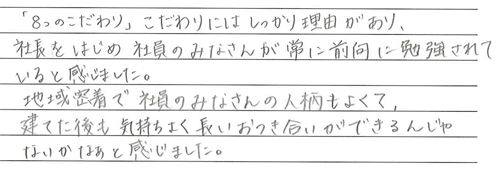 「8つのこだわり」こだわりにはしっかり理由があり、
社長をはじめ社員のみなさんが常に前向に勉強されて
いると感じました。
地域密着で社員のみなさんの人柄もよくて、
建てた後も気持ちよく長いおつき合いができるんじゃ
ないかなぁと感じました。